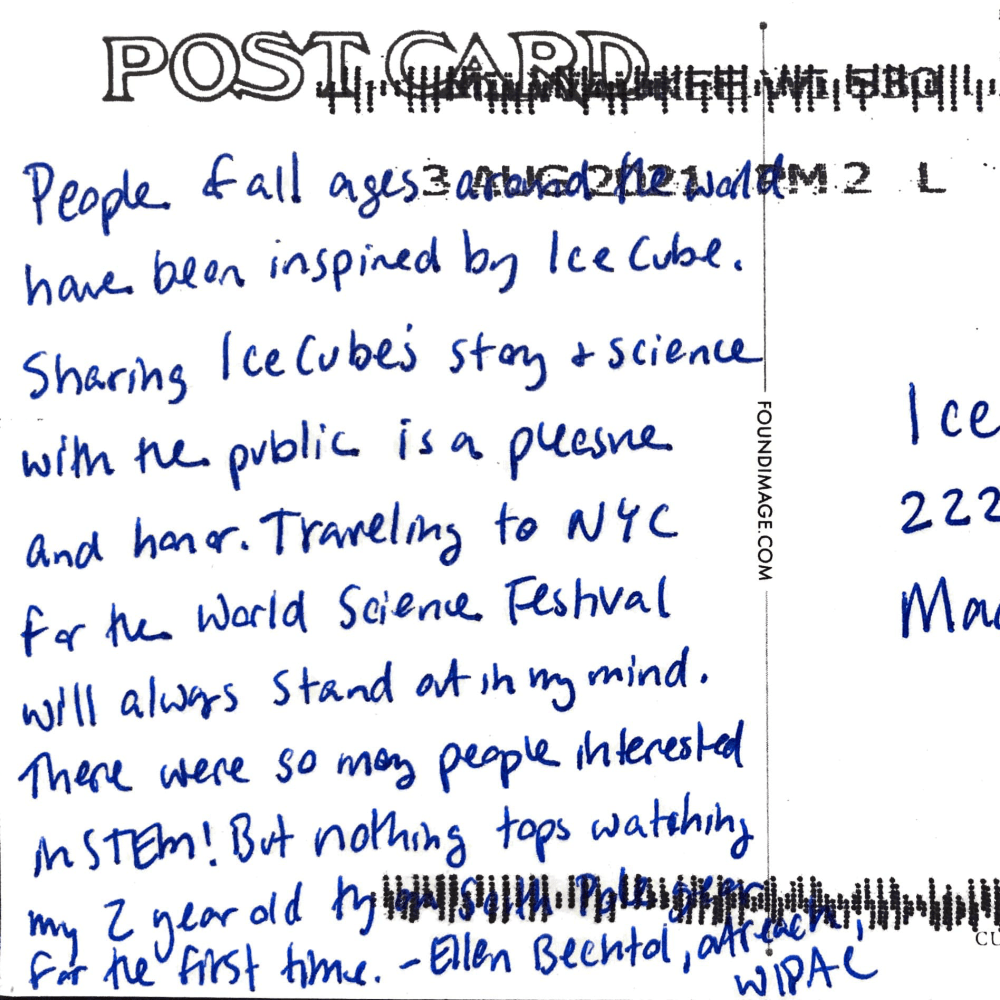 POST CARD
MILWAUKEE WI 530
3 AUG 2021 PM 2 L
People of all ages around the world
have been inspired by IceCube.
Sharing IceCube's story + science
with the public is a pleasure
and honor. Traveling to NYC
for the World Science Festival
will always stand out in my mind.
There were so many people interested
in STEM! But nothing tops watching
my 2 year old try on South Pole gear
for the first time. - Ellen Bechtol, outreach,
WIPAC
FOUNDIMAGE.COM
Ice
222
Mad
CU